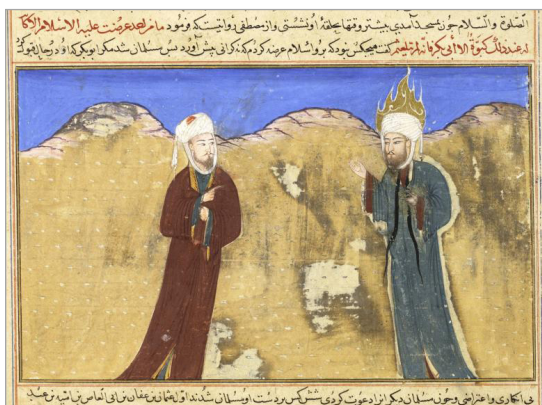 الصلوة والسلام چون بمسجد آمدی بیشتر وقتها بحلقه او نشستی واز مصطفی روایتست که فرمود ما من احد عرضت علیه الاسلام الا کانت
له عنده کبوة الا ابی بکر فانه لم یتلعثم گفت هیچکس نبود که برو اسلام عرضه کردم که نه کراتی پیش آورد بس مسلمان شد مکر ابو بکر که او در حال
بی انکاری واعتراضی وچون مسلمان دیکرانرا دعوت کردی شش کس بر دست او مسلمان شدند اول عثمان بن عفان بن ابی العاص بن امیة بن عبد